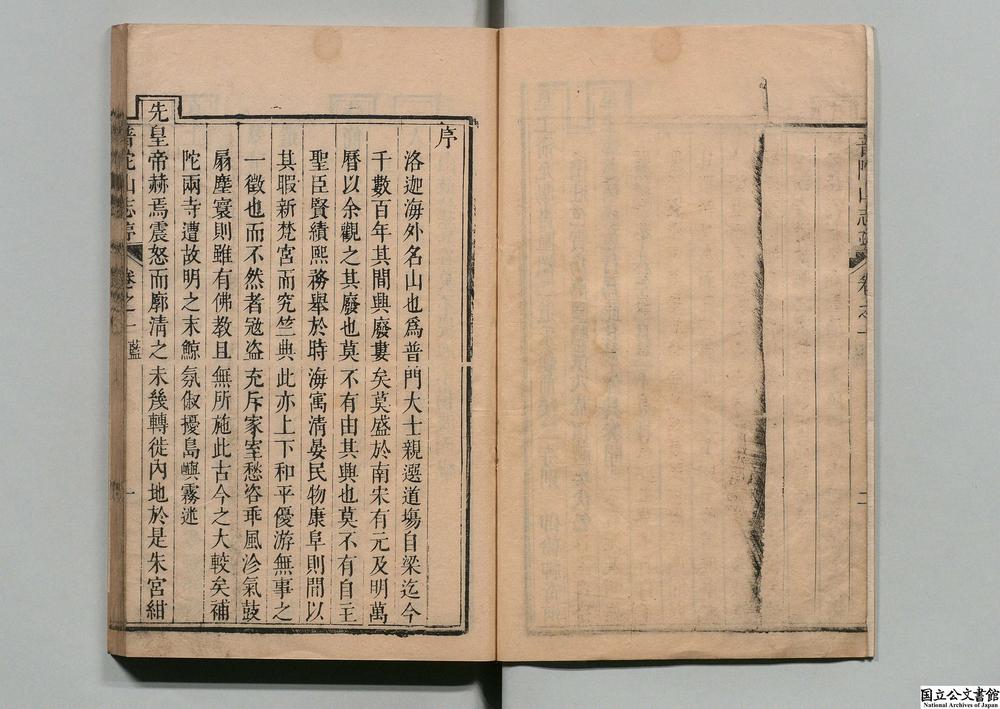 序
洛迦海外名山也爲普門大士親選道塲自梁迄今
千數百年其間興廢婁矣莫盛於南宋有元及明萬
曆以余觀之其廢也莫不有由其興也莫不有自主
聖臣賢績熙務舉於時海寓淸晏民物康阜則間以
其暇新梵宮而究竺典此亦上下和平優游無事之
一徵也而不然者宼盗充斥家室愁咨乖風沴氣鼓
扇塵寰則雖有佛教且無所施此古今之大較矣補
陀兩寺遭故明之末鯨氛俶擾島嶼霧迷
先皇帝赫焉震怒而廓清之未幾轉徙內地於是朱宮紺
普陀山志序
卷之一
一
二
国立公文書館
National Archives of Japan